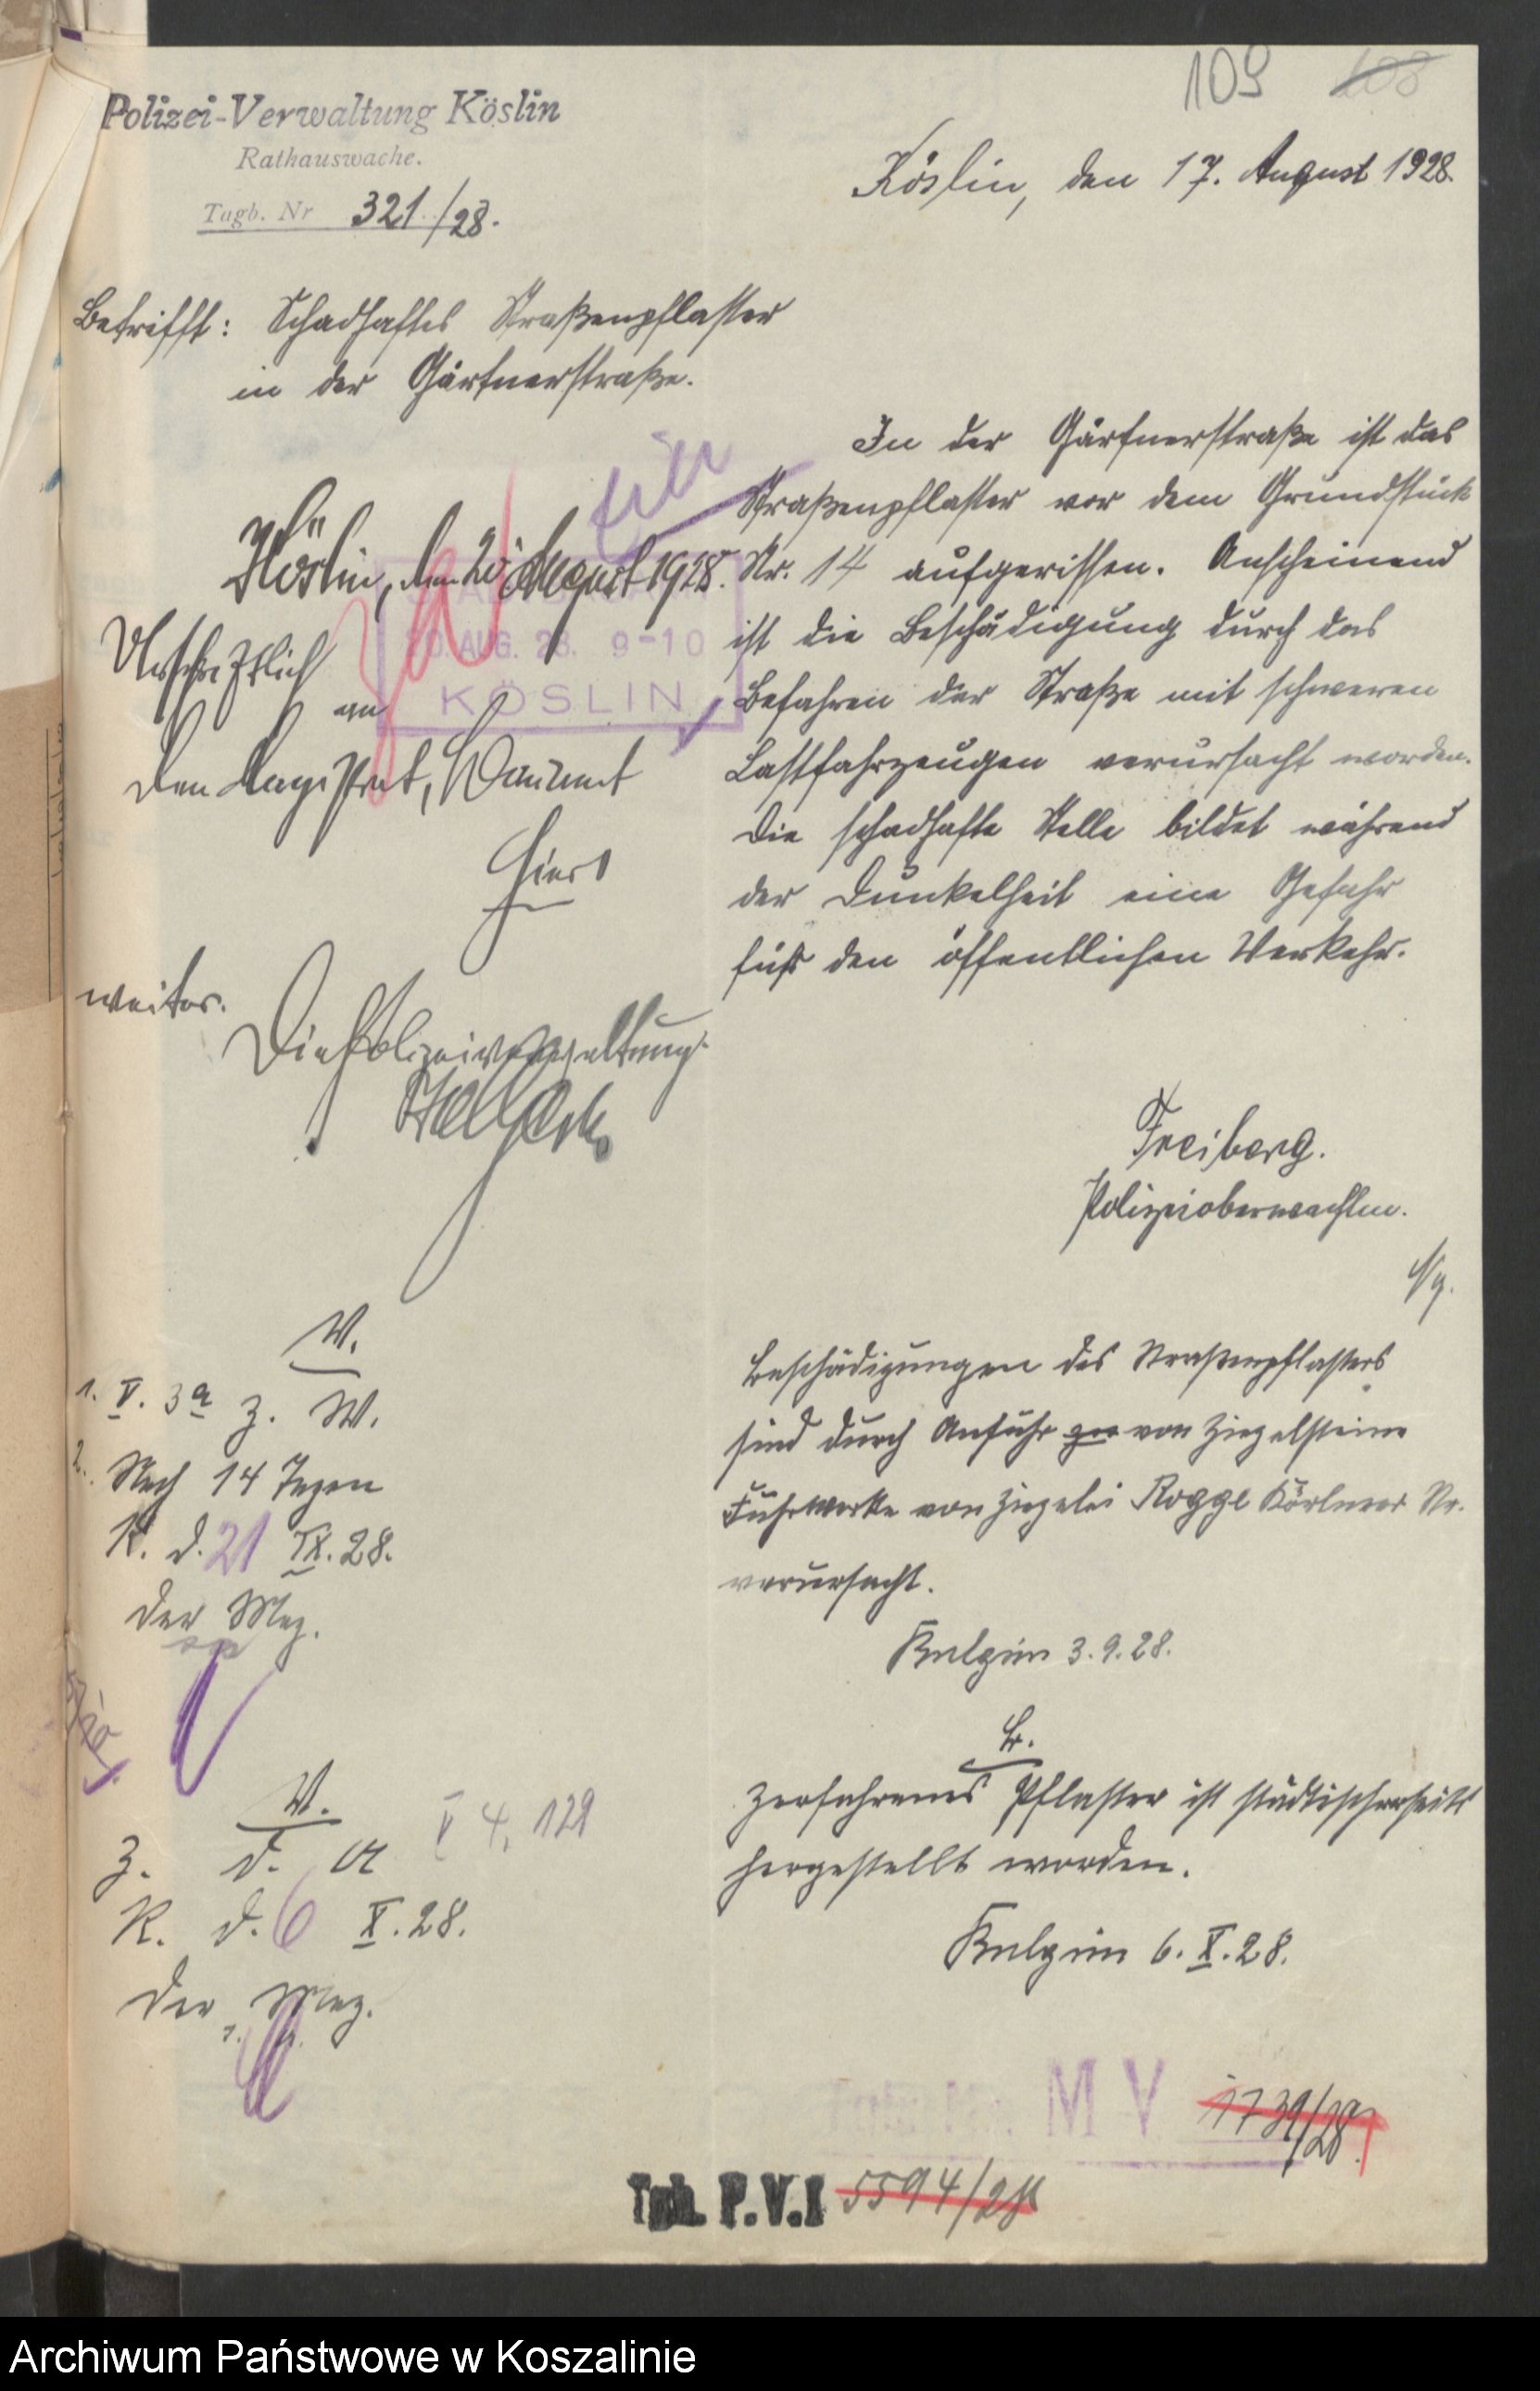 109
Polizei-Verwaltung Köslin
Rathauswache.
Tagb. Nr 321/28.
Köslin, den 17. August 1928.
Betrifft: Schadhaftes Straßenpflaster
in der Gärtnerstraße.
In der Gärtnerstraße ist das
Straßenpflaster vor dem Grundstück
Nr. 14 aufgerissen. Anscheinend
ist die Beschädigung durch das
Befahren der Straße mit schweren
Lastfahrzeugen verursacht worden.
Die schadhafte Stelle bildet während
der Dunkelheit eine Gefahr
für den öffentlichen Verkehr.
Freiberg.
Polizeioberwachtm.
Köslin, den 20 August 1928.
Urschriftlich
an
den Magistrat, Bauamt
Hier
weiter.
Die Polizeiverwaltung.
20. AUG. 28. 9-10
KÖSLIN
V.
1. V. 3a z. W.
2. Nach 14 Tagen
K. d. 21 IX. 28.
Der Mag.
Beschädigungen des Straßenpflasters
sind durch Anfuhr von Ziegelsteine
Fuhrwerke von Ziegelei Rogge Körliner Str.
verursacht.
3.9.28.
B.
Zerfahrenes Pflaster ist städtischerseits
hergestellt worden.
6. X. 28.
V.
V 4, 129
z. d. A
K. d. 6 X. 28.
Der Mag.
M V 1739/28
Tgb. P.V.I 5594/28
Archiwum Państwowe w Koszalinie